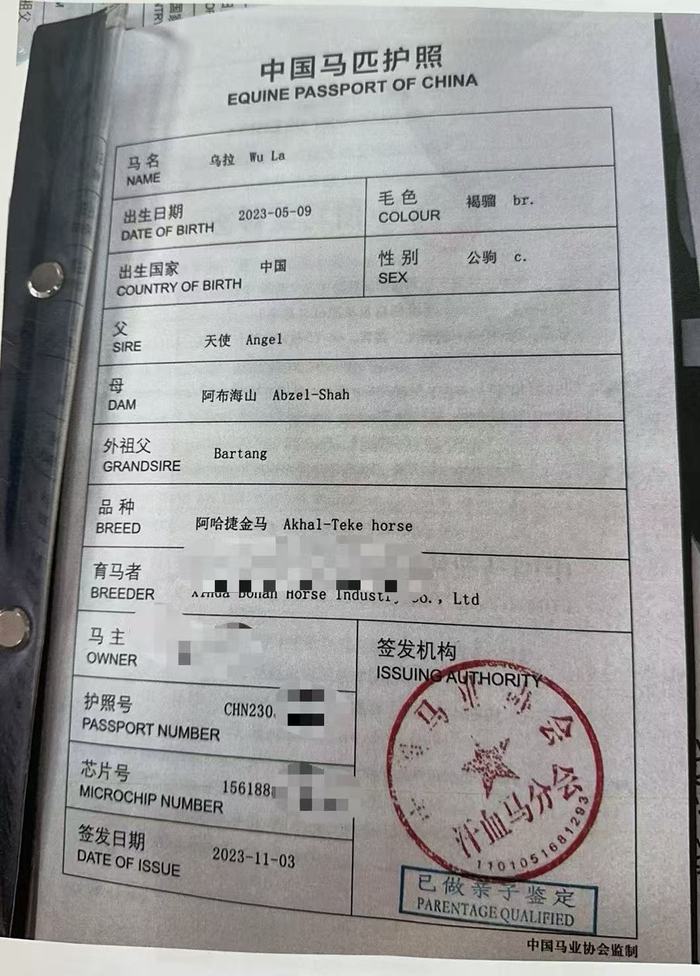 中国马匹护照
EQUINE PASSPORT OF CHINA
马名 乌拉 Wu La
NAME
出生日期 2023-05-09
DATE OF BIRTH
毛色 褐骝 br.
COLOUR
出生国家 中国
COUNTRY OF BIRTH
性别 公驹 c.
SEX
父 天使 Angel
SIRE
母 阿布海山 Abzel-Shah
DAM
外祖父 Bartang
GRANDSIRE
品种 阿哈捷金马 Akhal-Teke horse
BREED
育马者
BREEDER Horse , Ltd
马主
OWNER
签发机构
ISSUING AUTHORITY
护照号 CHN230
PASSPORT NUMBER
芯片号 156188
MICROCHIP NUMBER
签发日期 2023-11-03
DATE OF ISSUE
马业 会
汗血马分会
1101051681293
已做亲子鉴定
PARENTAGE QUALIFIED
中国马业协会监制